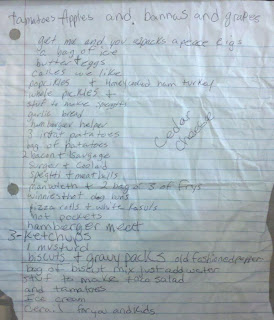 tamatoes Apples and bannas and grapes
get me and you 4packs apeace kigs
to bag of ice
butter + eggs
cakes we like
papr kles + ham turkey
whole pickles +
stuf to make spegeti
garlic bread
hamburger helper
3 instint patatoes
bag of patatoes
2 bacon + sausage
suger + coolaid
spegiti + meat balls
+ 2 bag of 3 at frys
winnies that ang buns
pizza rolls + white
hot pockets
hamberger meat
3-ketchups
1 mustund
biscuts + gravy packs old fashoned pepper
bag of biscit mix Just add water
stuf to makes taco salad
and tamatoes
Ice cream
for you and kids
Cedar cheese